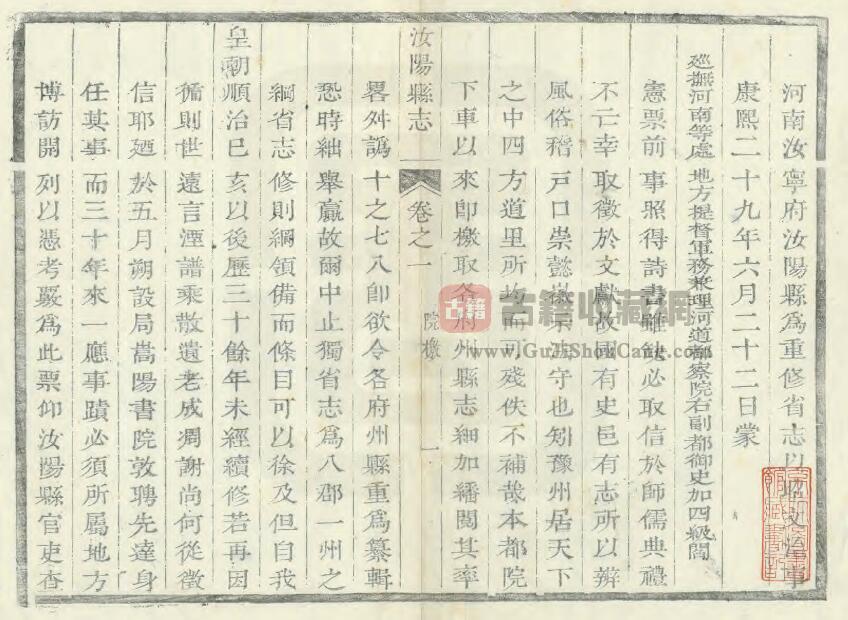 河南汝寧府汝陽縣爲重修省志以昭文治事
康熙二十九年六月二十二日蒙
廵撫河南等處地方提督軍務兼理河道都察院右副都御史加四級閻
憲票前事照得詩書雖缺必取信於師儒典禮
不亡幸取徵於文獻故國有史邑有志所以辨
風俗稽戶口崇懿嶶示法守也矧豫州居天下
之中四方道里所均而可殘佚不補哉本都院
下車以來卽檄取各府州縣志細加繙閱其率
汝陽縣志 卷之一 院檄 一
畧舛譌十之七八卽欲令各府州縣重爲纂輯
恐時絀舉羸故爾中止獨省志爲八郡一州之
綱省志修則綱領備而條目可以徐及但自我
皇朝順治巳亥以後歷三十餘年未經續修若再因
循則世遠言湮譜乘散遺老成凋謝尚何從徵
信耶廼於五月朔設局嵩陽書院敦聘先達身
任其事而三十年來一應事蹟必須所屬地方
博訪開列以憑考覈爲此票仰汝陽縣官吏查
古籍
古籍收藏網
www.GuJiShouCang.com